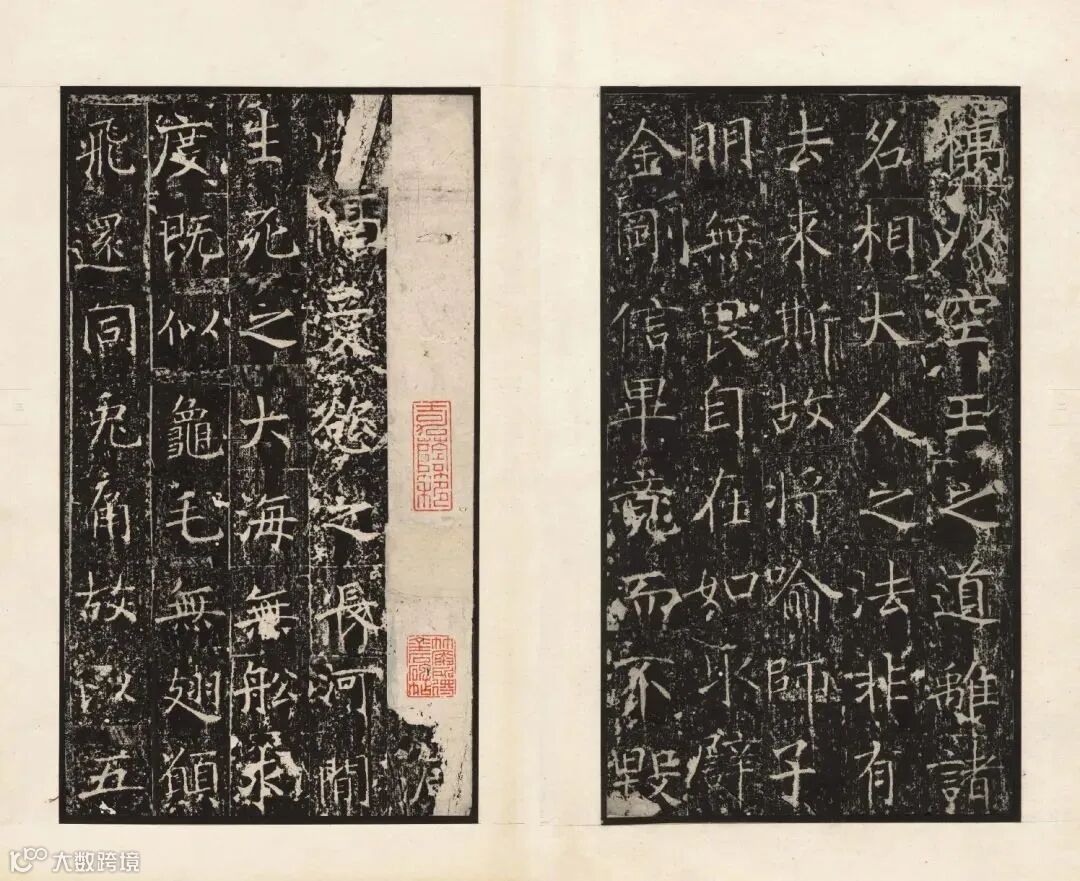 竊以空王之道離諸
名相大人之法非有
去來斯故將喻師子
明無畏自在如
金剛信畢竟而不毀
愛慾之長河閒
生死之大海無船求
度既似龜毛無翅願
飛還同兔角故以五
大数跨境